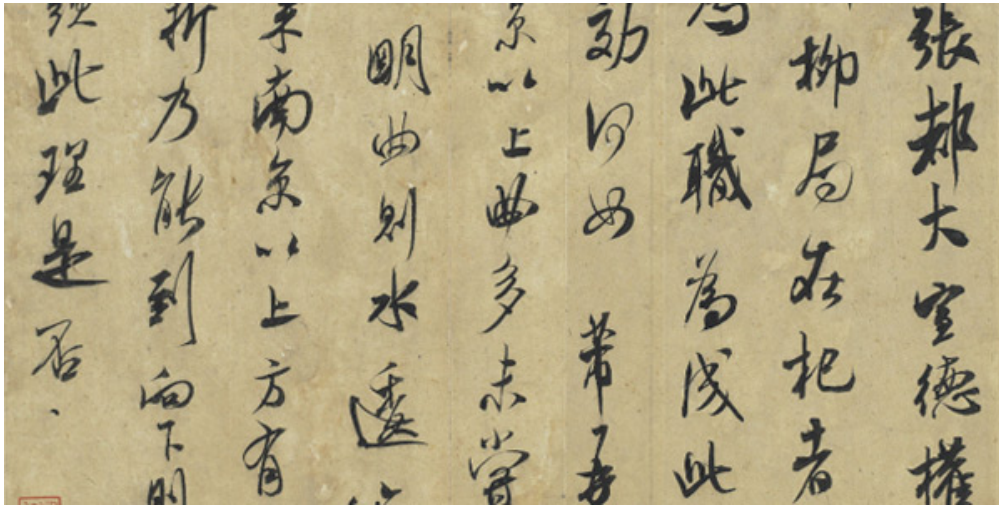 張都大宣德權
柳局在杞者
為此職為成此
効何如 芾再
京以上曲多未嘗
明曲則水透
來南京以上方有
折乃能到向下明
須此理是否